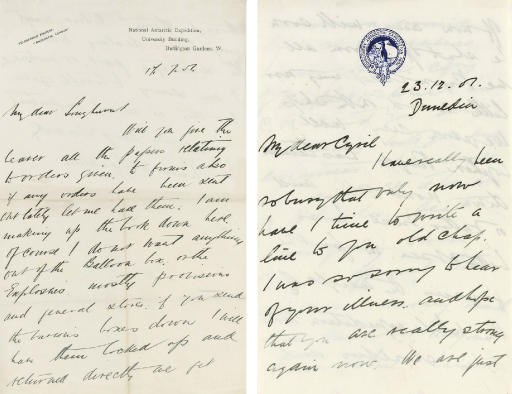 National Antarctic Expedition,
University Building,
Burlington Gardens, W.
My dear
Will you give the
bearer all the papers relating
to orders given to firms also
if any orders have been sent
out lately let me have them. I am
making up the book down here
of course I do not want anything
out of the Balloon box, or the
Explosives mostly provisions
and general stores. if you send
the various boxes down I will
have them locked up and
returned directly we get
23.12.01.
Dunedin
My dear Cyril
I have really been
so busy that only now
have I time to write a
line to you old chap.
I was so sorry to hear
of your illness. and hope
that you are really strong
again now. We are just